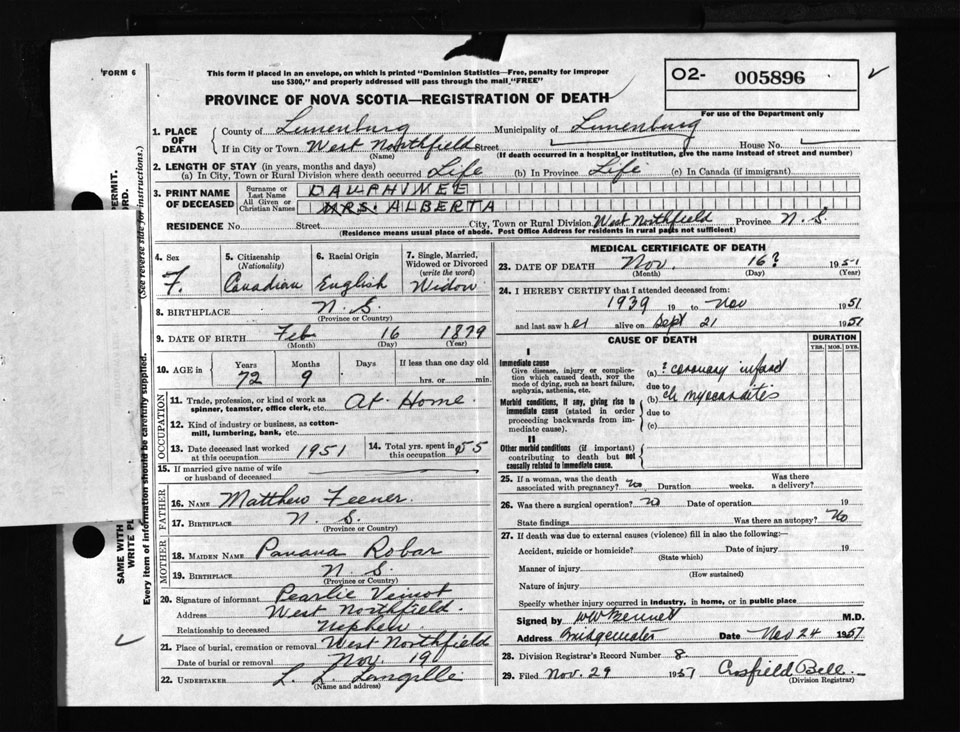 FORM 6
This form if placed in an envelope, on which is printed "Dominion Statistics—Free, penalty for improper
use $300," and properly addressed will pass through the mail "FREE"
O2- 005896
PROVINCE OF NOVA SCOTIA—REGISTRATION OF DEATH
For use of the Department only
1. PLACE OF DEATH
County of Lunenburg Municipality of Lunenburg
If in City or Town West Northfield Street House No.
(Name) (If death occurred in a hospital or institution, give the name instead of street and number)
2. LENGTH OF STAY (in years, months and days)
(a) In City, Town or Rural Division where death occurred Life (b) In Province Life (c) In Canada (if immigrant)
3. PRINT NAME OF DECEASED
Surname or Last Name DAUPHINEE
All Given or Christian Names MRS. ALBERTA
RESIDENCE No. Street City, Town or Rural Division West Northfield Province N. S.
(Residence means usual place of abode. Post Office Address for residents in rural parts not sufficient)
4. Sex F.
5. Citizenship (Nationality) Canadian
6. Racial Origin English
7. Single, Married, Widowed or Divorced (write the word) Widow
8. BIRTHPLACE N. S.
(Province or Country)
9. DATE OF BIRTH Feb 16 1879
(Month) (Day) (Year)
10. AGE in Years 72 Months 9 Days If less than one day old hrs. or min.
OCCUPATION
11. Trade, profession, or kind of work as spinner, teamster, office clerk, etc. At Home
12. Kind of industry or business, as cotton-mill, lumbering, bank, etc.
13. Date deceased last worked at this occupation 1951
14. Total yrs. spent in this occupation 55
15. If married give name of wife or husband of deceased
FATHER
16. NAME Matthew Feener
17. BIRTHPLACE N. S.
(Province or Country)
MOTHER
18. MAIDEN NAME Panana Robar
19. BIRTHPLACE N. S.
(Province or Country)
20. Signature of informant Pearlie Veinot
Address West Northfield.
Relationship to deceased Nephew
21. Place of burial, cremation or removal West Northfield
Date of burial or removal Nov. 19
22. UNDERTAKER L. L. Langille
(Name and address)
MEDICAL CERTIFICATE OF DEATH
23. DATE OF DEATH Nov. 16? 1951
(Month) (Day) (Year)
24. I HEREBY CERTIFY that I attended deceased from:
1939 19 to Nov 1951
and last saw her alive on Sept 21 1951
CAUSE OF DEATH
DURATION
YRS. MOS. DYS.
I
Immediate cause
Give disease, injury or complication which caused death, NOT the mode of dying, such as heart failure, asphyxia, asthenia, etc.
(a) ? coronary infarct
due to
(b) ch myocarditis
Morbid conditions, if any, giving rise to immediate cause (stated in order proceeding backwards from immediate cause).
due to
(c)
II
Other morbid conditions (if important) contributing to death but not causally related to immediate cause.
25. If a woman, was the death associated with pregnancy? No Duration weeks. Was there a delivery?
26. Was there a surgical operation? No Date of operation 19
State findings Was there an autopsy? No
27. If death was due to external causes (violence) fill in also the following:—
Accident, suicide or homicide? Date of injury 19
(State which)
Manner of injury
(How sustained)
Nature of injury
Specify whether injury occurred in industry, in home, or in public place
Signed by WW Bennett M.D.
Address Bridgewater Date Nov 24 1951
28. Division Registrar's Record Number 8.
29. Filed Nov. 29 1951 Crosfield Bell
(Division Registrar)
PERMIT.
(See reverse side for instructions.)
Every item of information should be carefully supplied.
SAME WITH
WRITE